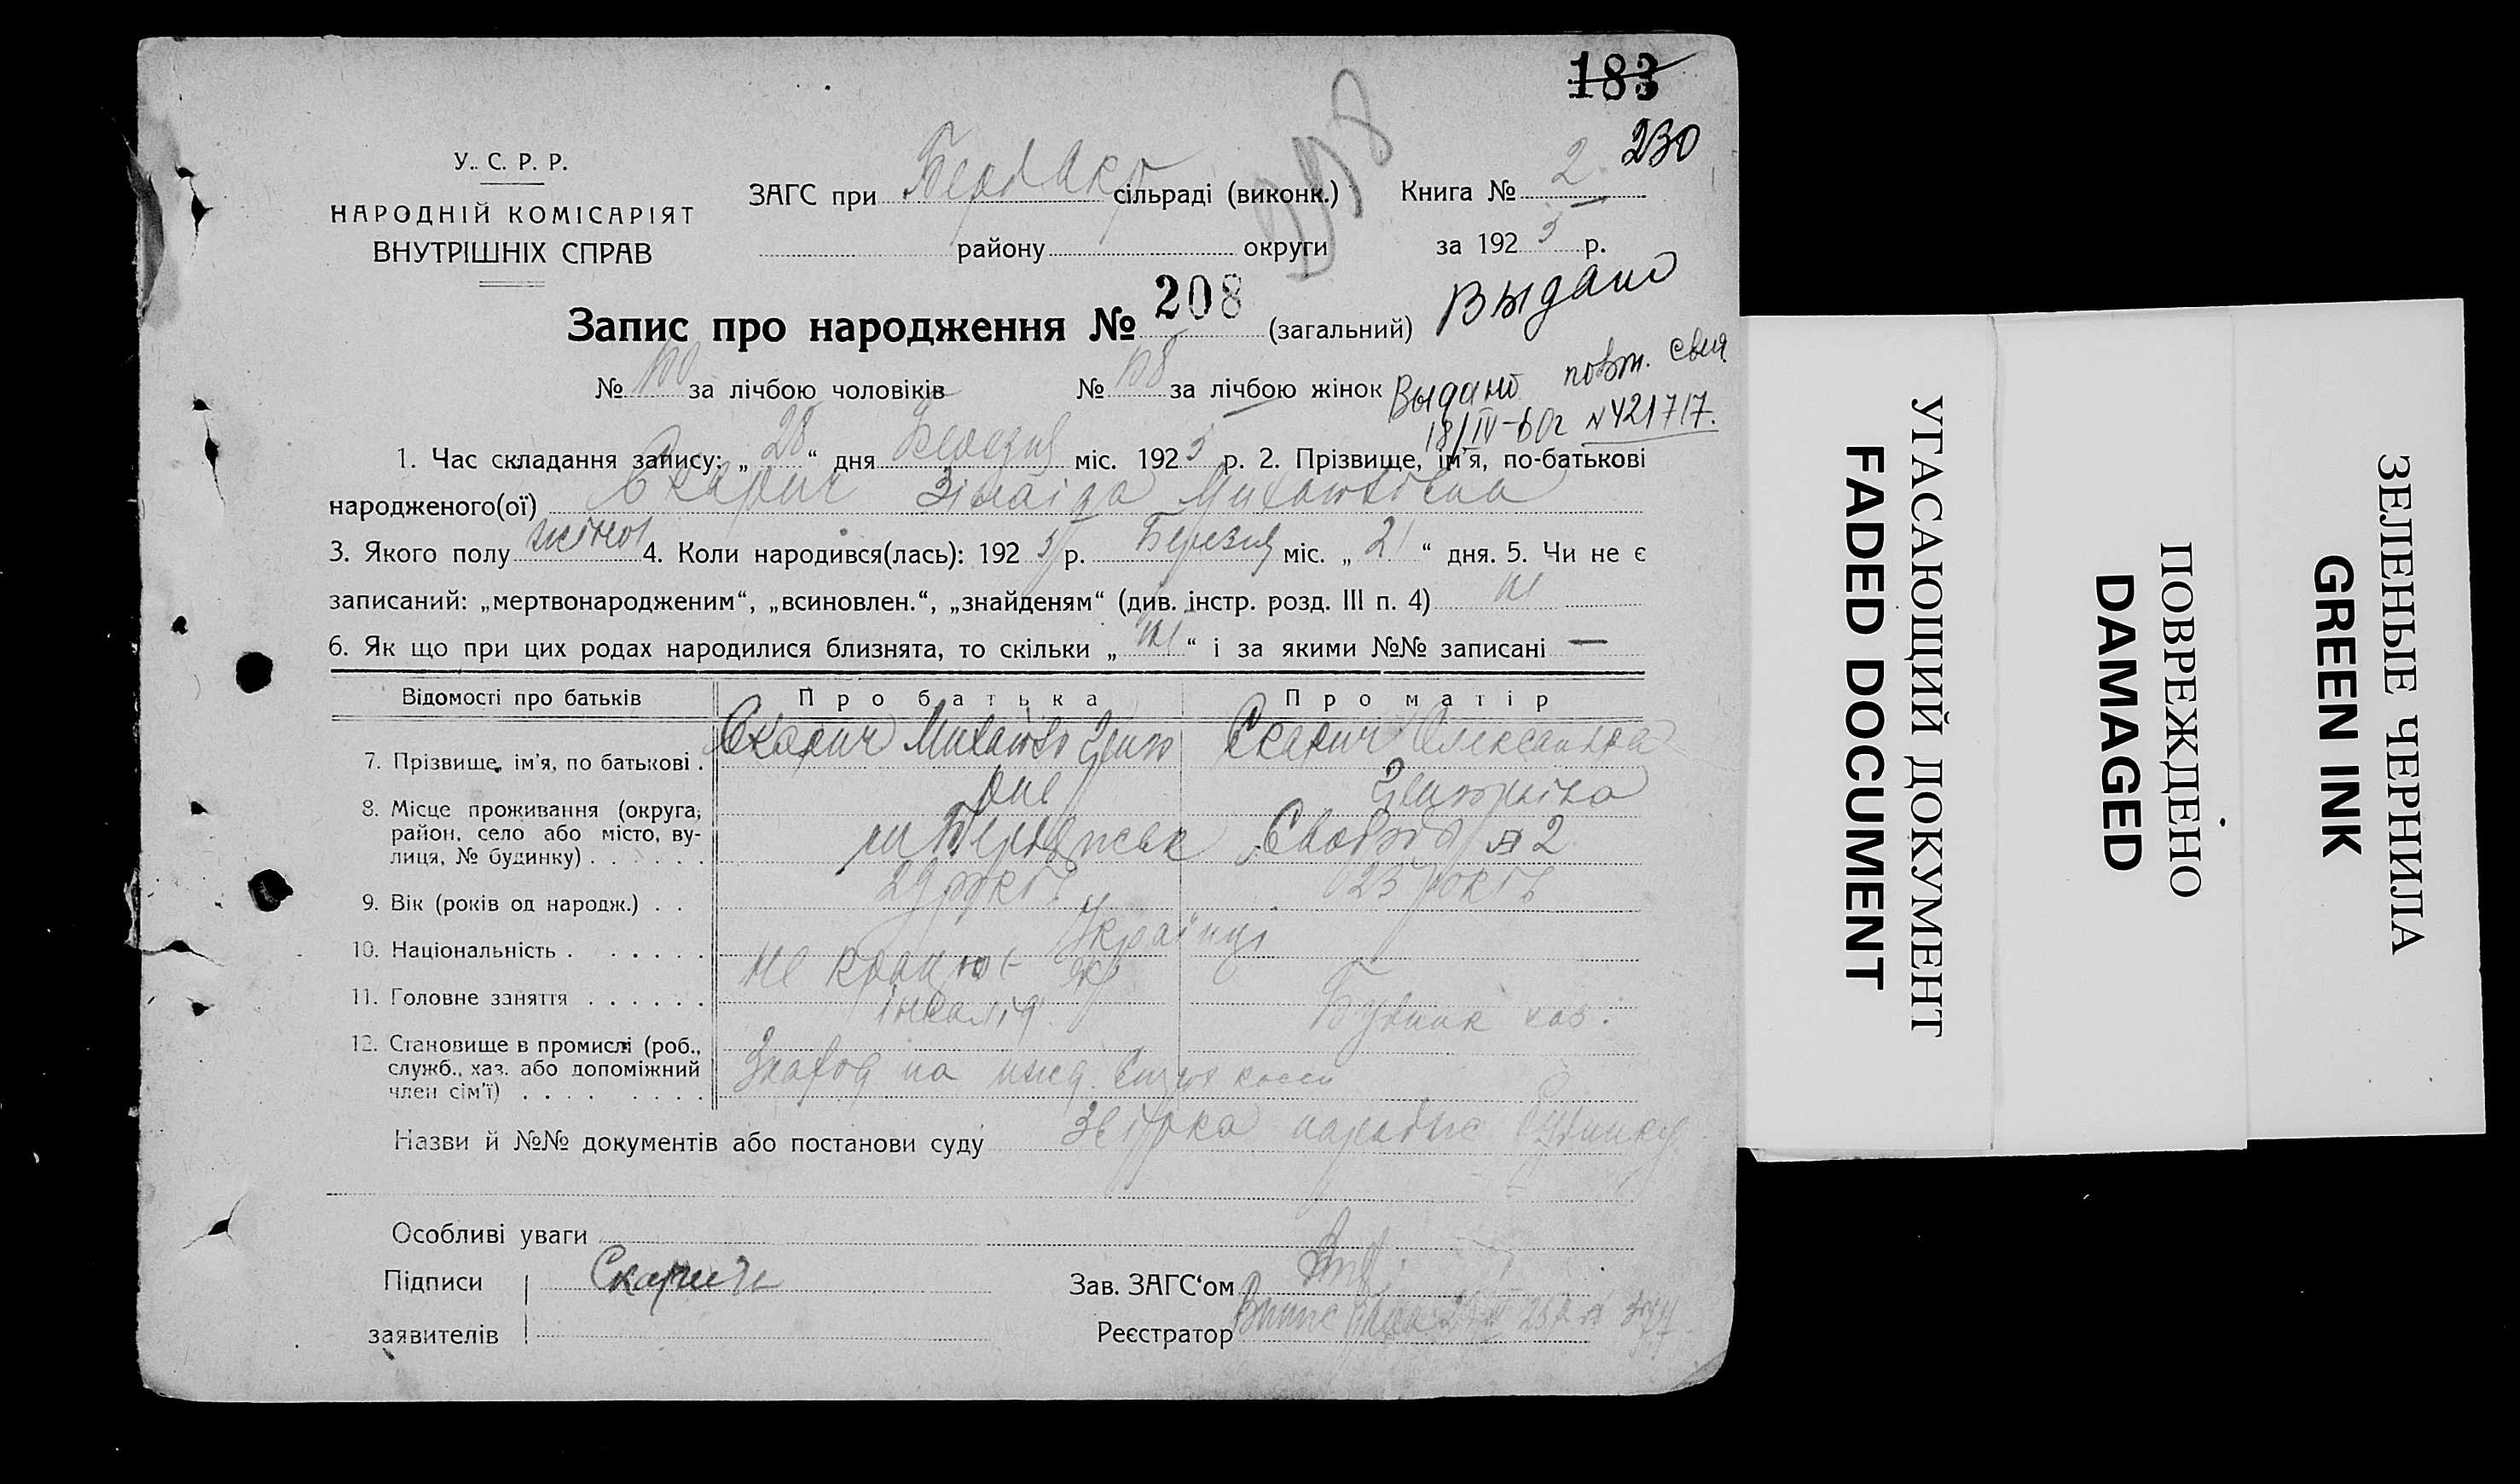 183
230
У. С. Р. Р.
НАРОДНІЙ КОМІСАРІЯТ
ВНУТРІШНІХ СПРАВ
ЗАГС при сільраді (виконк.) Книга № 2
району округи за 1925 р.
Запис про народження № 208 (загальний) Выдано
№ за лічбою чоловіків № за лічбою жінок Выдано повт. свид
18/IV-60г N 421717.
1. Час складання запису: „ 28 “ дня Березня міс. 1925 р. 2. Прізвище, ім'я, по-батькові
народженого(ої) Скарич Зінаіда Михайловна
3. Якого полу жіноч 4. Коли народився(лась): 1925 р. Березня міс. „ 21 “ дня. 5. Чи не є
записаний: „мертвонародженим“, „всиновлен.“, „знайденям“ (див. інстр. розд. III п. 4) ні
6. Як що при цих родах народилися близнята, то скільки „ ні “ і за якими №№ записані —
Відомості про батьків Про батька Про матір
7. Прізвище, ім'я, по батькові . Скарич Михайло Скарич Олександра
8. Місце проживання (округа, район, село або місто, вулиця, № будинку) . . . . . . м Бердянськ Слобода № 2
9. Вік (років од народж.) . . 29 років 23 років
10. Національність . . . . . . Українці
11. Головне заняття . . . . . . не працює інвалід Будинк хаз.
12. Становище в промислі (роб., служб., хаз. або допоміжний член сім'ї) . . . . . . . . на касси
Назви й №№ документів або постанови суду будинку
Особливі уваги
Підписи Скарич Зав. ЗАГС‘ом
заявителів Реєстратор
УГАСАЮЩИЙ ДОКУМЕНТ
FADED DOCUMENT
ПОВРЕЖДЕНО
DAMAGED
ЗЕЛЕНЫЕ ЧЕРНИЛА
GREEN INK